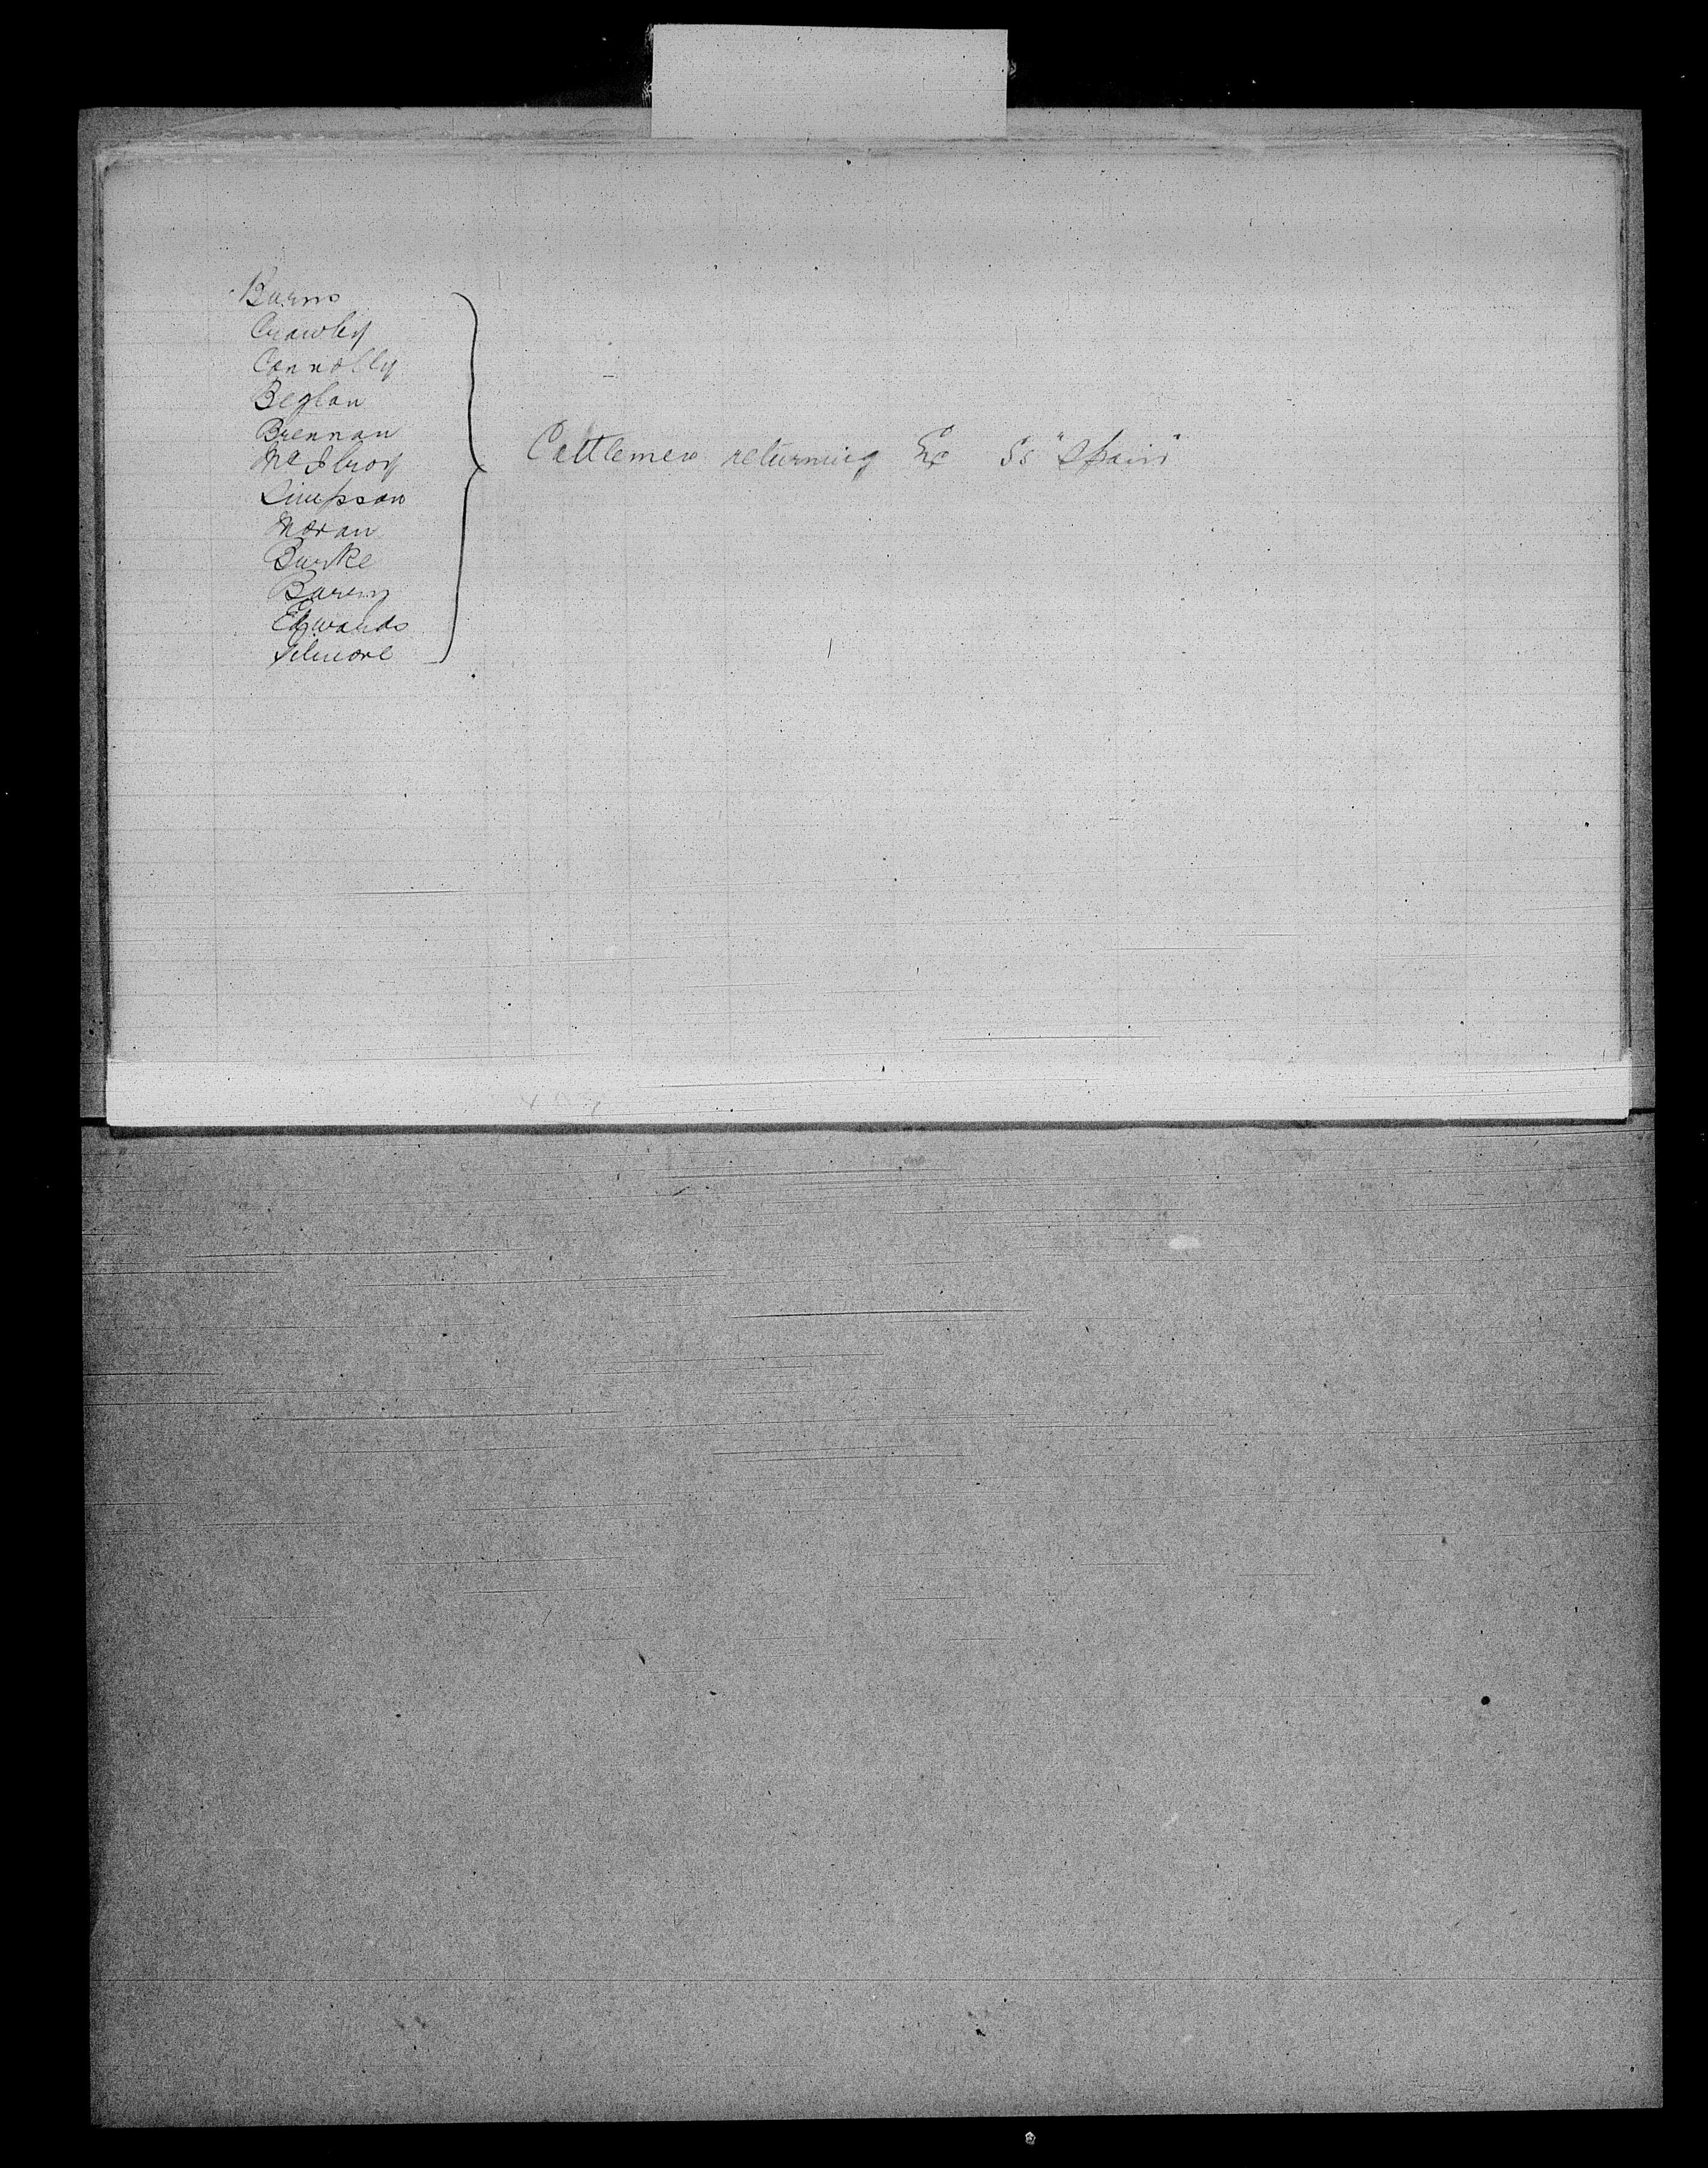 Burns
Crowley
Connolly
Beglan
Brennan
McIlroy
Simpson
Moran
Burke
Edwards
Gilmore
Cattlemen returning Ex Ss "Spain"